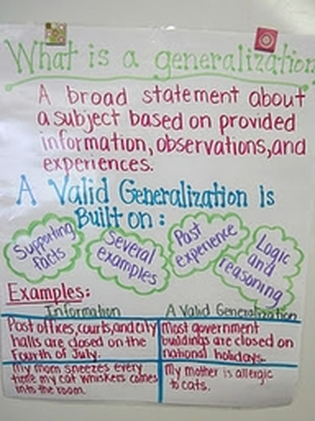 What is a generalization
A broad statement about
a subject based on provided
information, observations, and
experiences.
A Valid Generalization is
Built on:
Supporting
facts
Several
examples
Past
experience
Logic
and
reasoning
Examples:
Information
A Valid Generalization
Post offices, courts, and city
halls are closed on the
Fourth of July.
Most government
buildings are closed on
national holidays.
My mom sneezes every
time my cat whiskers comes
into the room.
My mother is allergic
to cats.